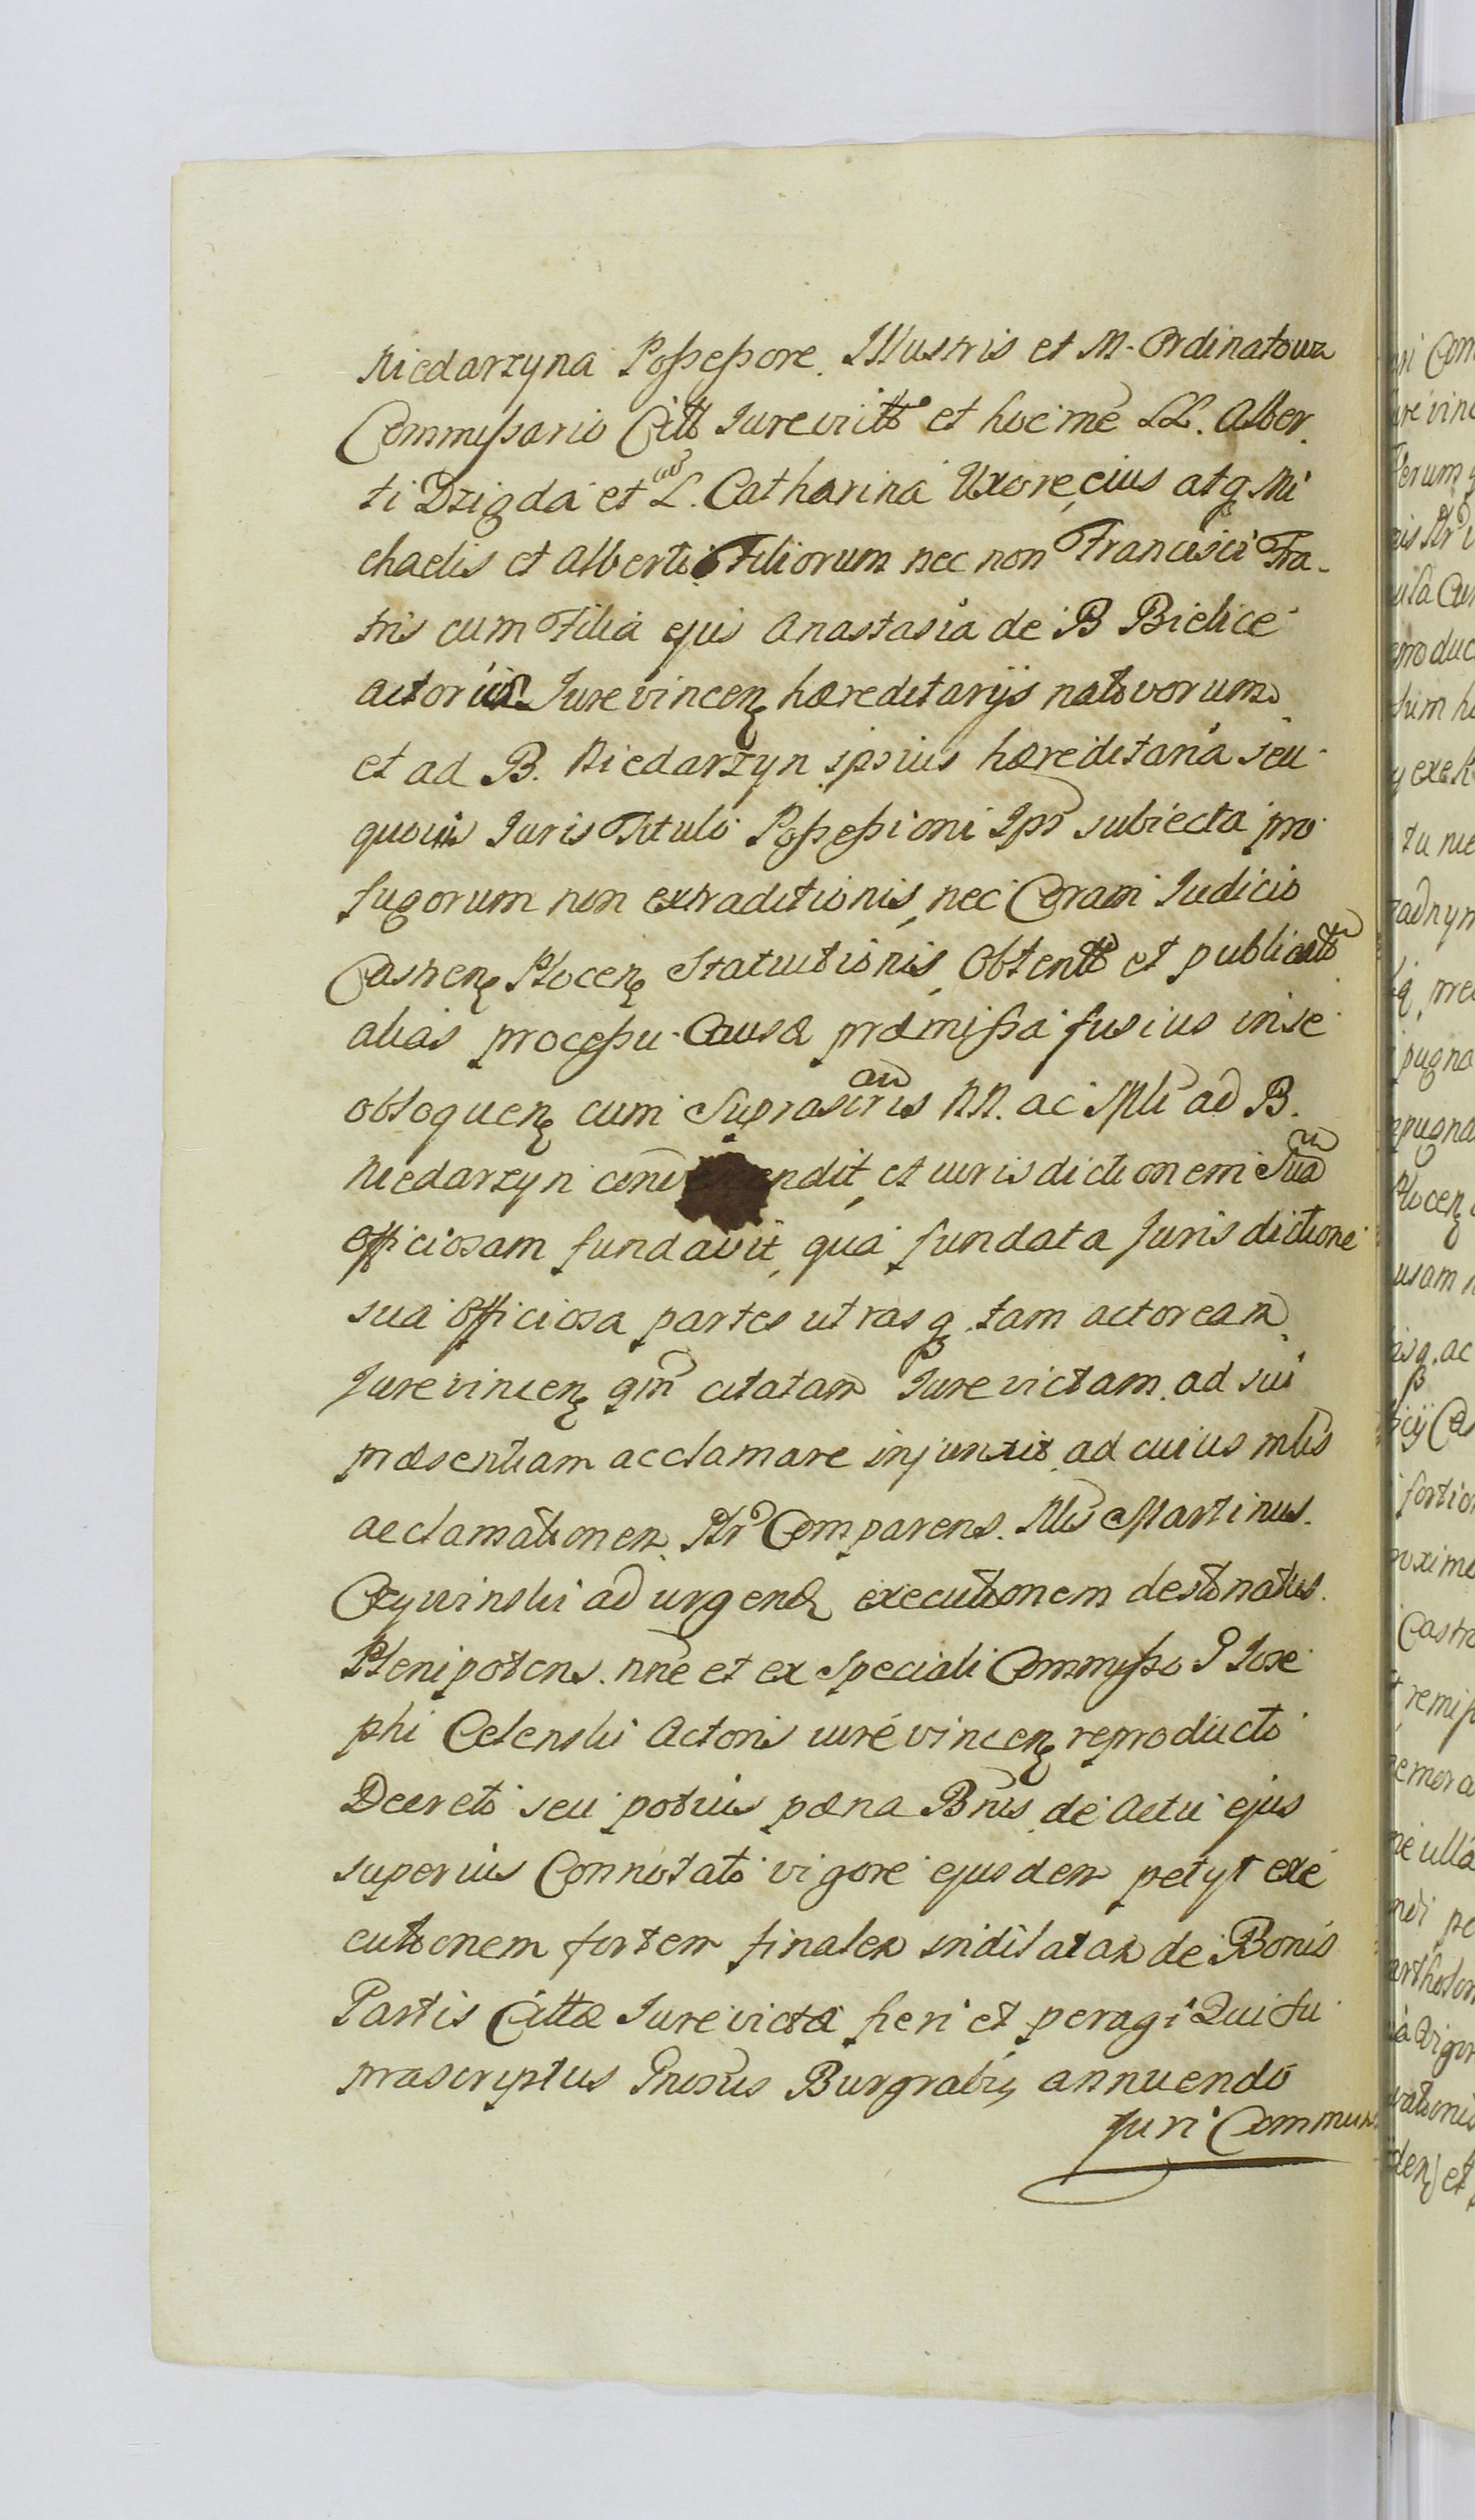 Niedarzyna Possessore. Illustris et M. Ordinatoum
Commissario Citto Jurevictto et hoc me LL. Alber.
ti Dzigda et cū L. Catharina Uxore, eius atq Mi
chaelis et Alberti Filiorum nec non Francisci Fra-
tris cum Filia ejus Anastasia de B Bielice
actorum Jurevincen hæreditarijs nativorum
et ad B. Niedarzyn ipsius hæreditaria seu
quovis Juris Titulo Possessioni Ipsi subiecta pro
fugorum non extraditionis, nec Coram Judicio
Castren Plocen Statuitionis, Obtento et publicato
alias processu Causæ præmissa fusius in se
obloquen cum Suprascriptis NN. ac Mli ad B.
Niedarzyn endit, et iurisdictionem Suā
Officiosam fundavit, qua fundata Jurisdictione
sua Officiosa partes utrasq tam actoream
Jurevincen qm citatam Jurevictam ad sui
præsentiam acclamare injunxit ad cuius mlis
acclamationem Ptr Comparens. Nlis Martinus
Czywinski ad urgend executionem destinatus.
Plenipotens. nne et ex Speciali Commisso G Jose
phi Celenski Actoris iurevincen reproducto
Decreto seu potius pæna Bnis de Actu ejus
superius Connotato vigore ejusdem petyt exe
cutionem fortem finalem indilatam de Bonis
Partis Cittæ Jurevictæ fieri et peragi Qui su
prascriptus Gnosus Burgrabis annuendo
Juri Commun